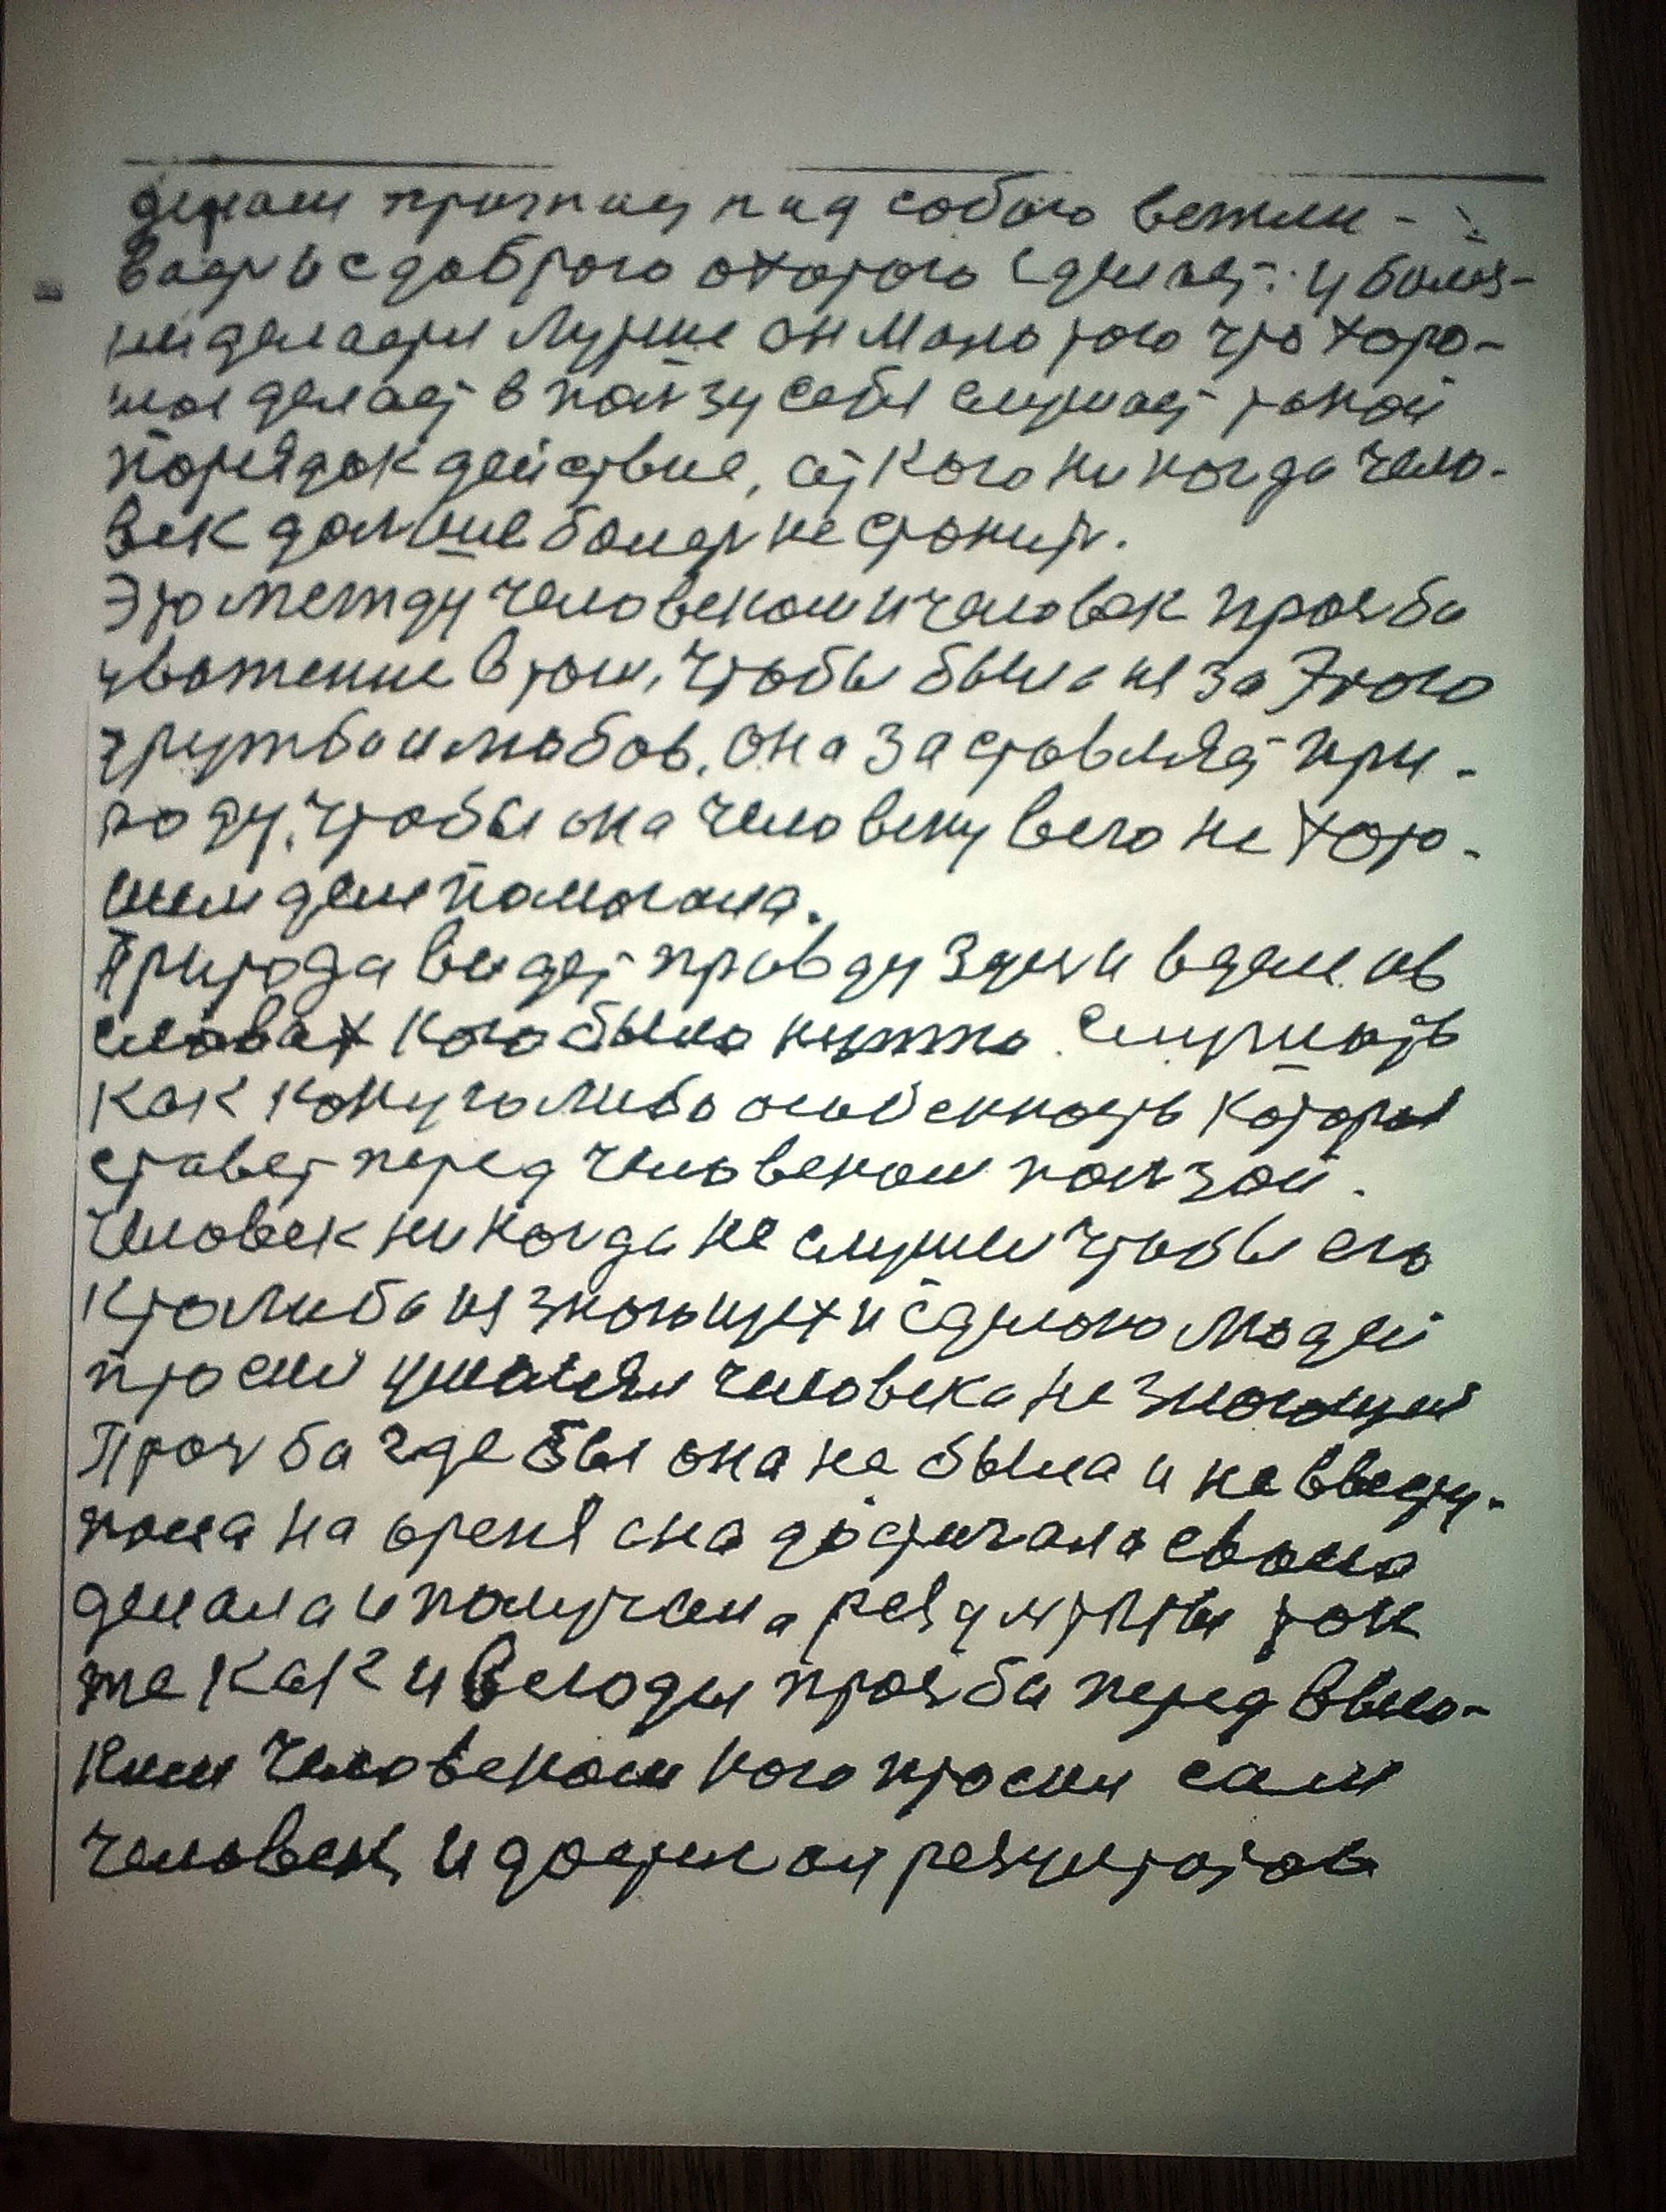 собою вежли-
и с доброго охотого сделает. и болез-
ни делается лучше он мало того что хоро-
шое делает в пользу себя слушает такой
порядок действие, от кого никогда чело-
век дольше болеть не станить.
Это между человеком и человек прозьба
уважение в том, чтобы была из за этого
дружба и любов. Она заставляет при-
роду, чтобы она человеку в его не хоро-
шем деле помогала.
Природа видет правду здеси в деле и в
словах кого было нужно слушать
как какуюлибо особенность которая
ставет перед человеком пользой.
Человек никогда не слушал чтобы его
ктолибо из знающих и сделаю людей
просил человека не знающий
Прозьба где бы она не была и не высту-
пала на арене она достигала своего
делала и получала результаты так
же как и в молодых прозьба перед высо-
ким человеком кого просил сам
человек и достигал результатов